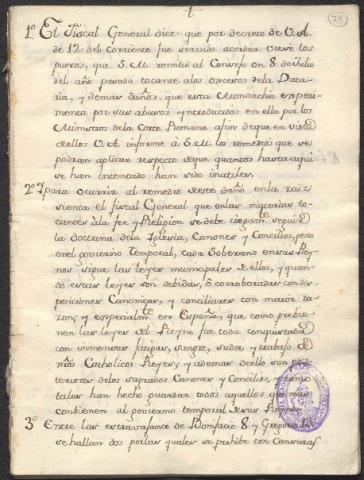 1º El Fiscal General dice: que por decreto de V.A.
de 12 del corriente fue servido acordar viese los
puntos, que S.M. remitió al Consejo en 8 de Julio
del año pasado tocante a los excesos de la Data-
ria, y demas daños, que esta Monarchia experi-
menta por sus abusos introducidos en ella por los
Ministros de la Corte Romana afin de que en vista
de ellos V.A. informe à S.M. los remedios que se
podran aplicar respecto de que quantos hasta aqui
se han intentado han sido inutiles.
2º Y para ocurrir al remedio de este daño en la raiz
sienta el Fiscal General que en las materias to-
cantes à la fee y Religion se debe ciegam.te seguir
la doctrina de la Iglesia, Canones y Concilios, pero
en el govierno temporal, cada Soberano en sus Rey-
nos sigue las leyes municipales de ellos, y quan-
do estas leyes son debidas, ó corroboradas con dis-
posiciones Canonicas, y conciliares con maior ra-
zon; y especialm.te en España, que como previe-
nen las leyes del Reyno fue toda conquistada
con inmensas fatigas, sangre, sudor y trabajo de
nros Catholicos Reyes; y ademas de ello son pos-
teriores de los sagrados Canones y Concilios, y como
tales han hecho guardar todos aquellos que mas
contienen al govierno temporal de sus Reynos.
3º Entre las extravagantes de Bonifacio 8. y Gregorio
se hallan dos por las quales se prohibe con Censuras